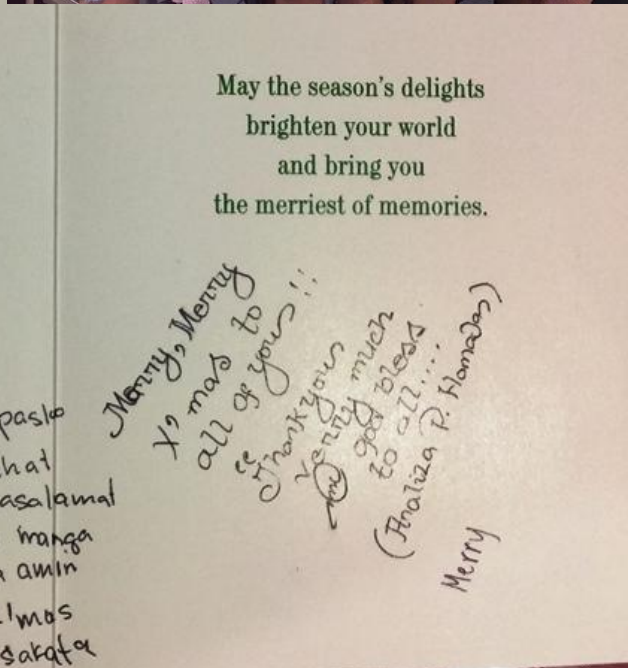 May the season's delights
brighten your world
and bring you
the merriest of memories.
Marry, Merry
X, mas to
all of yous!!
Thank yous
Verry much
god bless
to all....
(Analiza P.
Merry
hat
asalamat
manga
amin